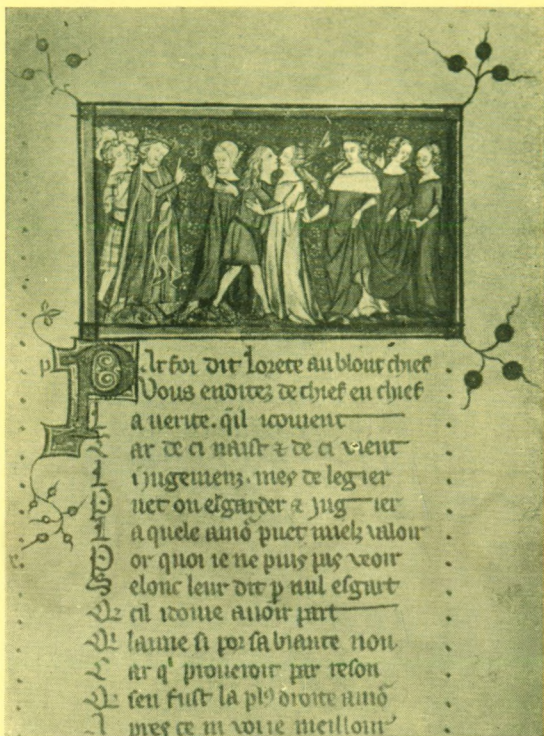 Par foi dit lorete au blont chief
Vous en ditez de chief en chief
La uerite. qil icouient
Car de ci naist ⁊ de ci vient
Li iugemenz. mes de legier
Puet on esgarder ⁊ jugier
La quele amo puet mielz ualoir
Por quoi ie ne puis pas veoir
Selonc leur dit p nul esgart
cil idoiue auoir part
laune si por sa biaute non
Car q' proueroit par reson
seu fust la pl9 droite amo